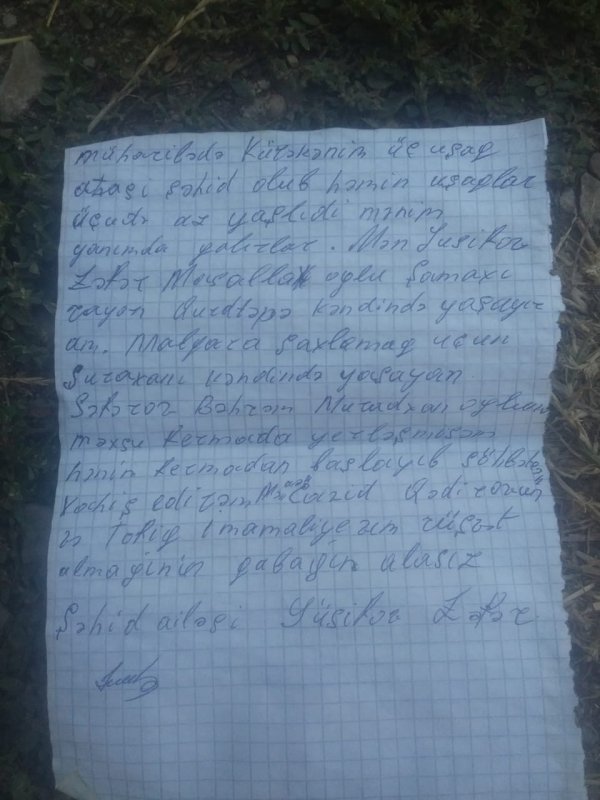 müharibədə Kürəkənim üç uşag
atası şəhid olub həmin uşaglar
üçüdə az yaşlıdi mənim
yanımda galırlar. Mən Yusifov
Zəfər Moşallah oglu Şamaxı
rayon Qurdtəpə kəndində yaşayır
am. Malgara Saxlamag üçun
Suraxanı kəndində yaşayan
Səfərov Bəhrəm Muradxan oglunun
məxsu fermada yerləşmişəm
həmin fermadan başlayıb
Xahiş edirəm Cavid Qədirovun
və Tofig Imamaliyevin rüşvət
almaginin gabagın alasız
Şəhid ailəsi Yüsifov Zəfər